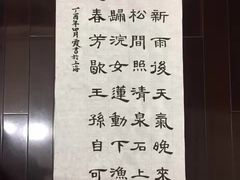 新雨後天氣晚來
松間照清泉石上
歸浣女蓮動下漁
春芳歇王孫自可
丁酉年四月霞書於上海